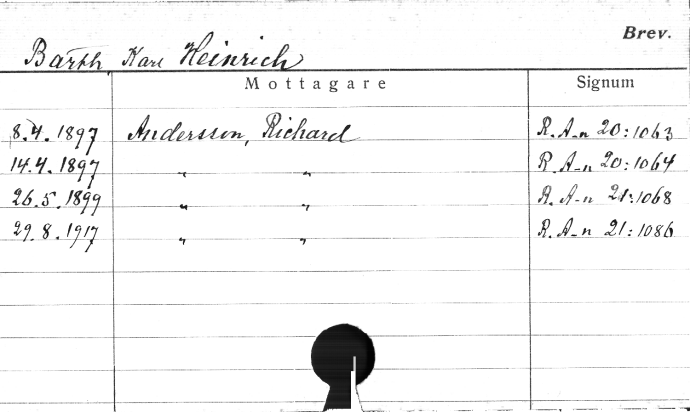 Brev.
Barth Karl Heinrich
Mottagare Signum
8.4.1897 Andersson, Richard R. A-n 20:1063
14.4.1897 " " R. A-n 20:1064
26.5.1899 " " R. A-n 21:1068
29.8.1917 " " R. A-n 21:1086